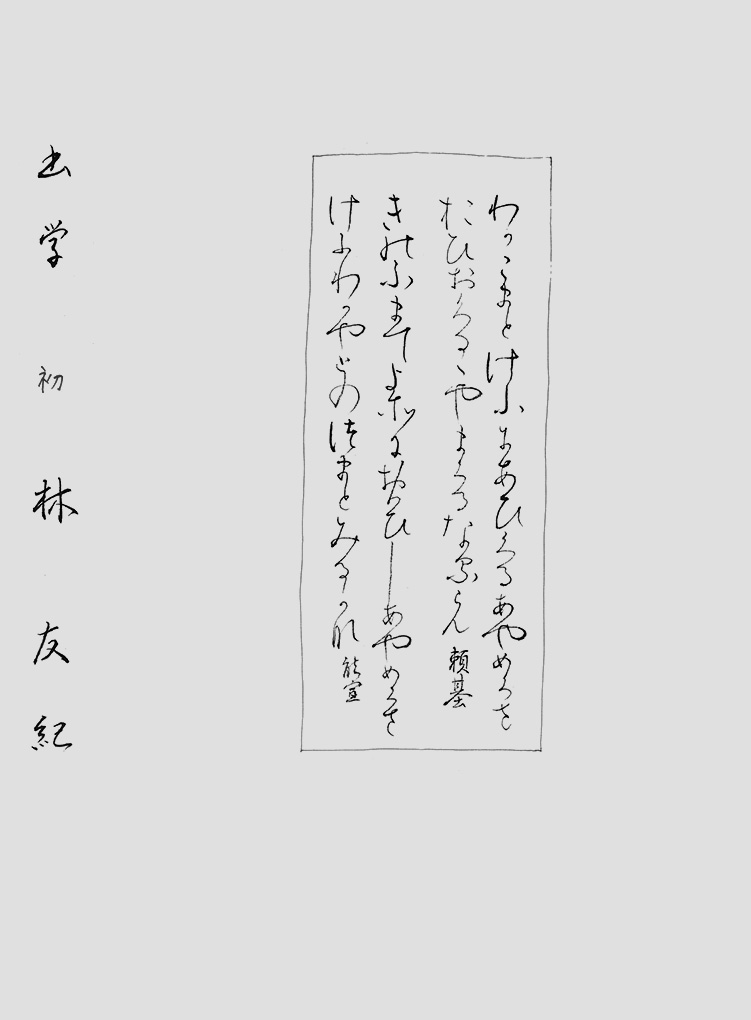 わかこまとけふにあひくるあやめくさ
おひおくるゝやまくるなるらん 頼基
きのふまてよそにおもひしあやめくさ
けふわかやとのつまとみるかな 能宣
出学 初 林友紀